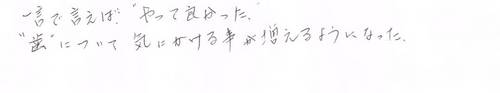 一言で言えば、"やって良かった。
"歯"について気にかける事が増えるようになった。